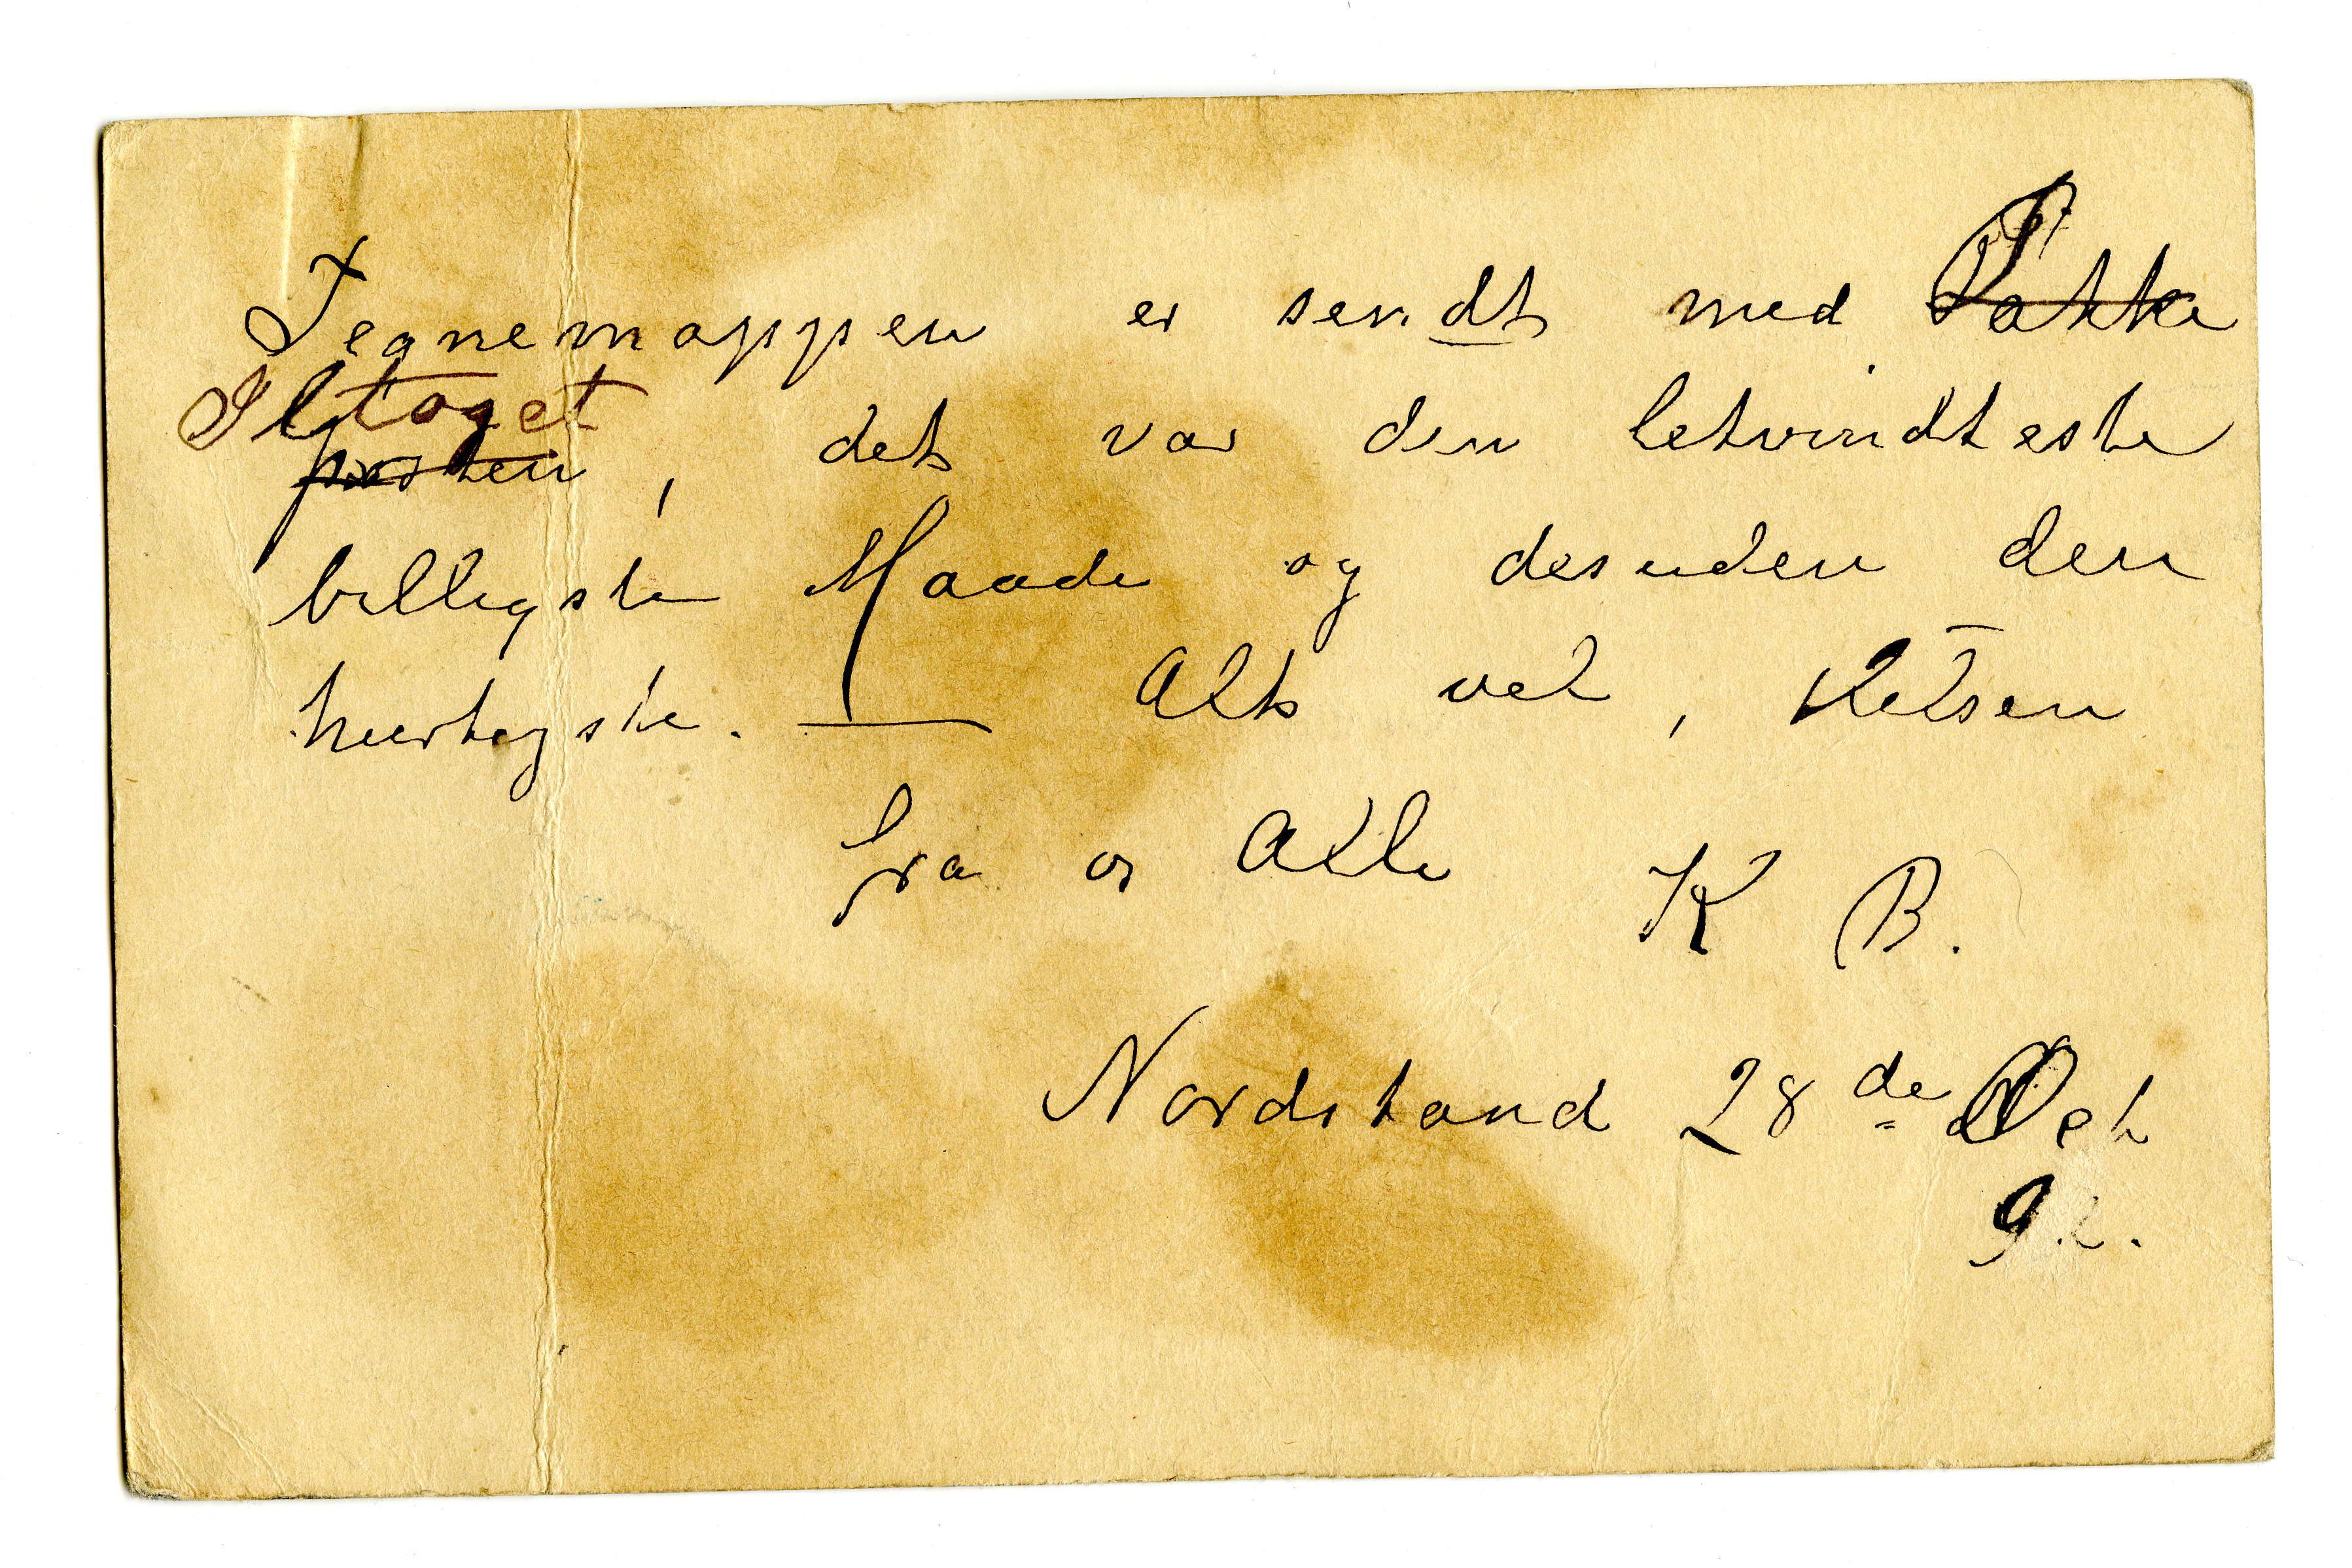 Tegnemappen er sendt med Pakke
Iltoget
posten, det var den letvindteste
billigste Maade og desuden den
hurtigste. — Alt vel, Hilsen
fra os Alle K B.
Nordstrand 28de Oct
92.